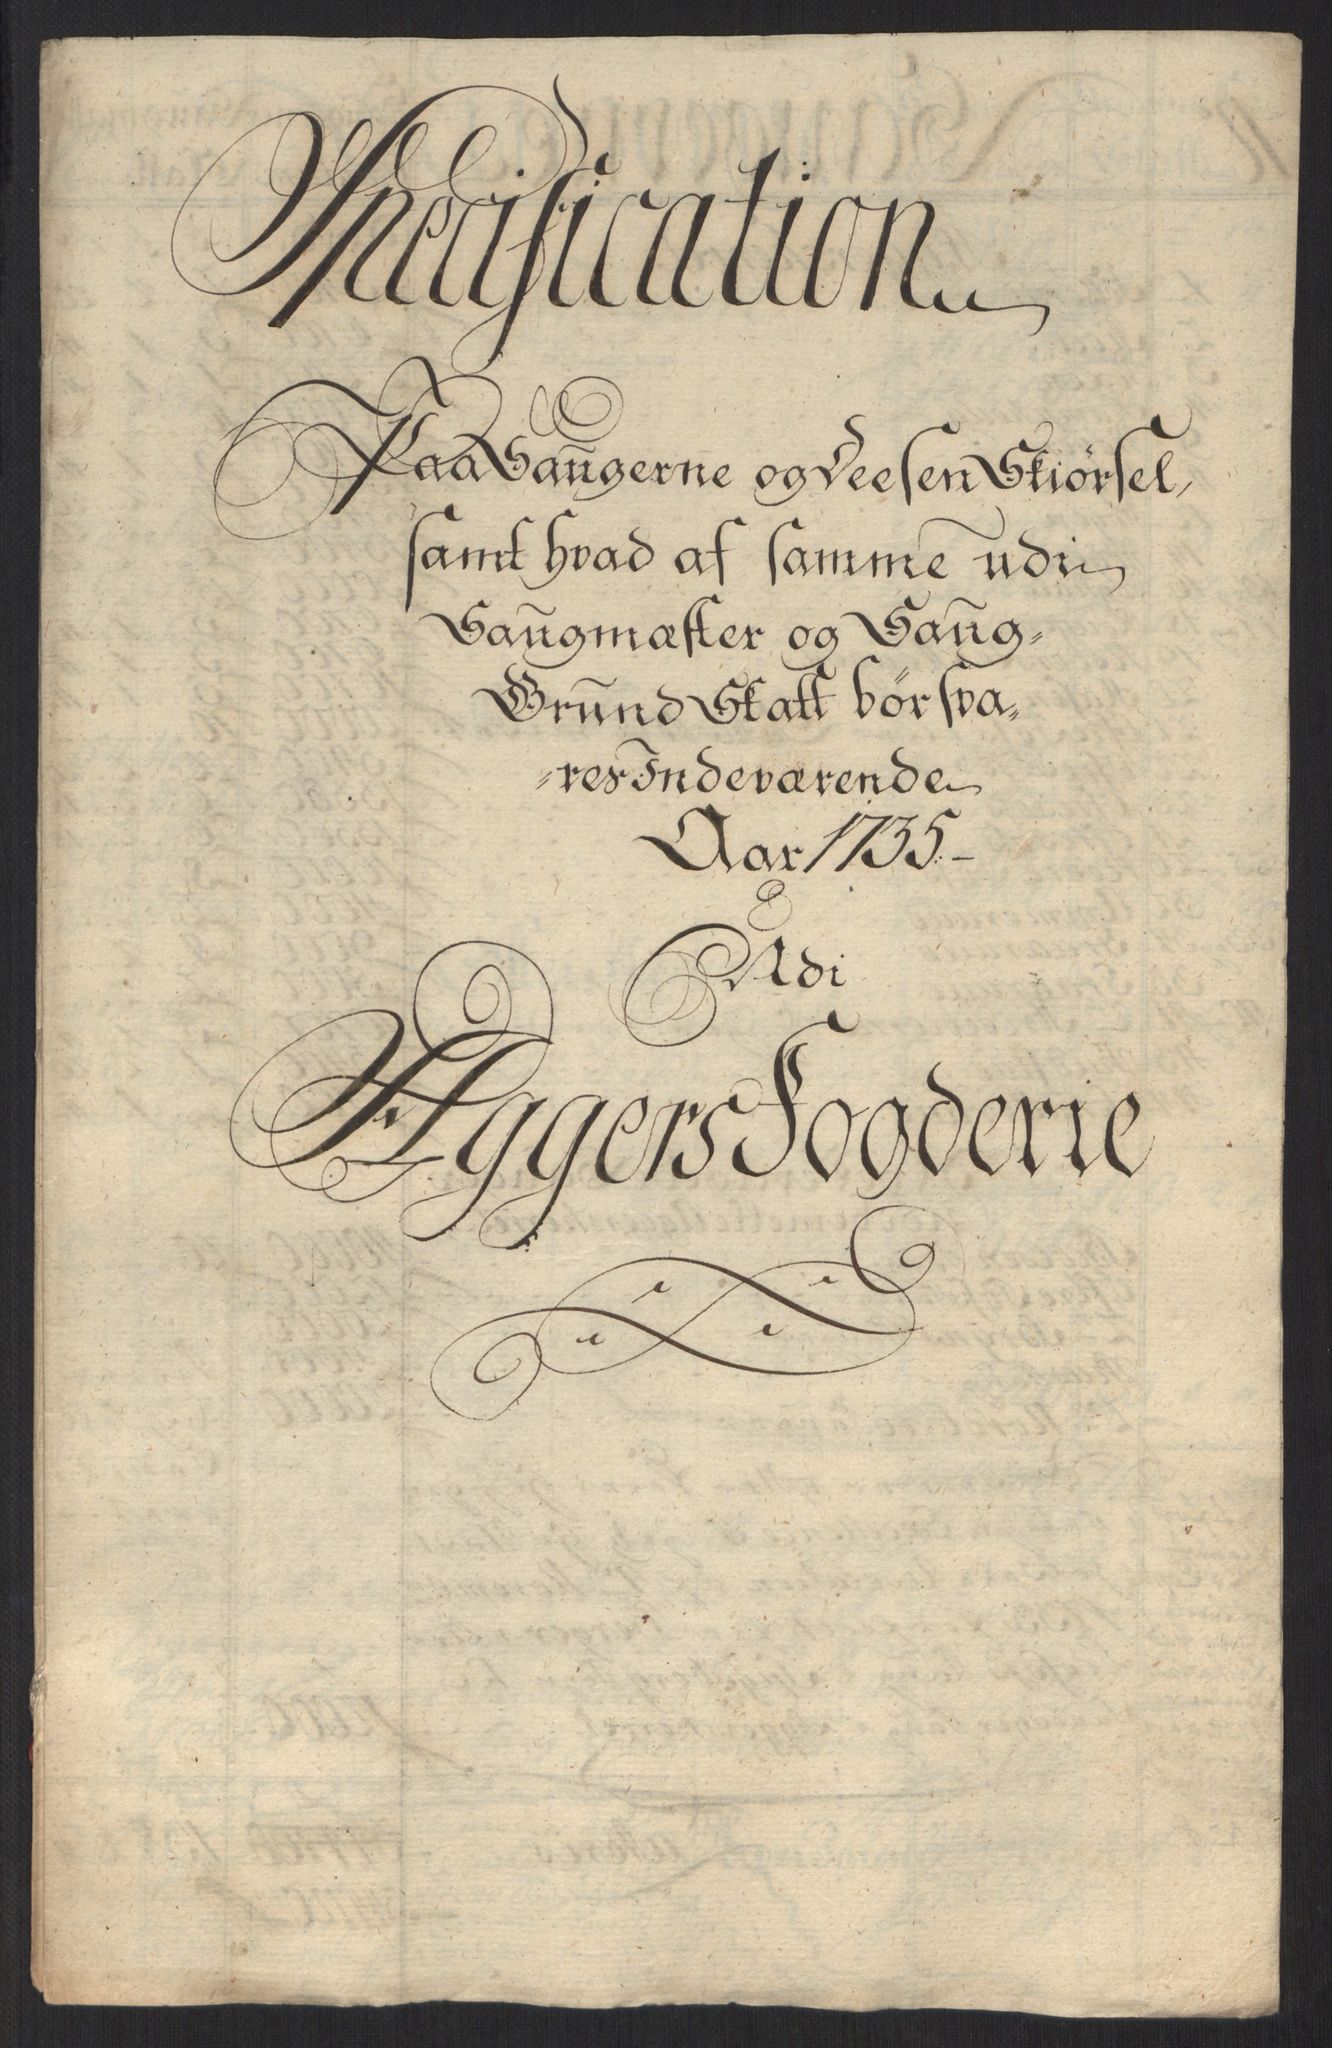 Specification
Paa Saugerne og deesen Skiørsel,
samt hvad af samme udi
Saugmæster og Saug-
Grund Skatt bør sva-
res Indeværende
Aar 1735
Udi
Aggers Fogderie